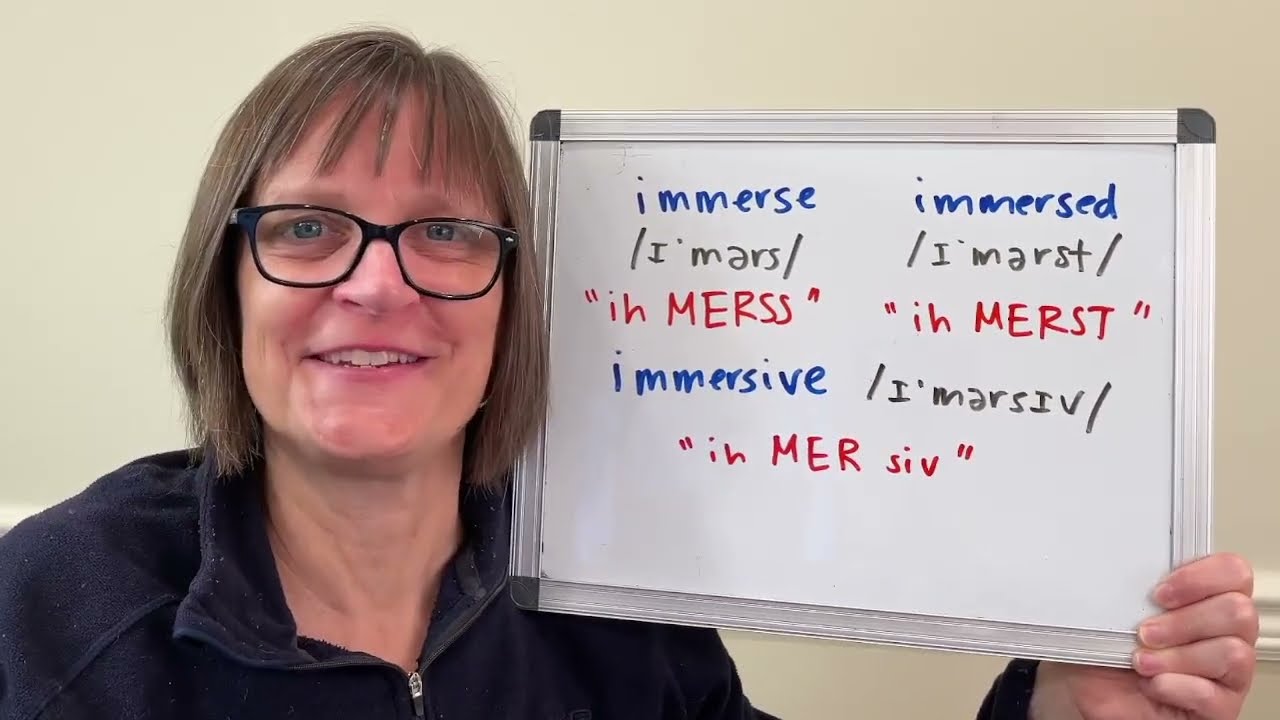 immerse immersed
/ɪˈmərs/ /ɪˈmərst/
"ih MERSS" "ih MERST"
immersive /ɪˈmərsɪv/
"ih MER siv"